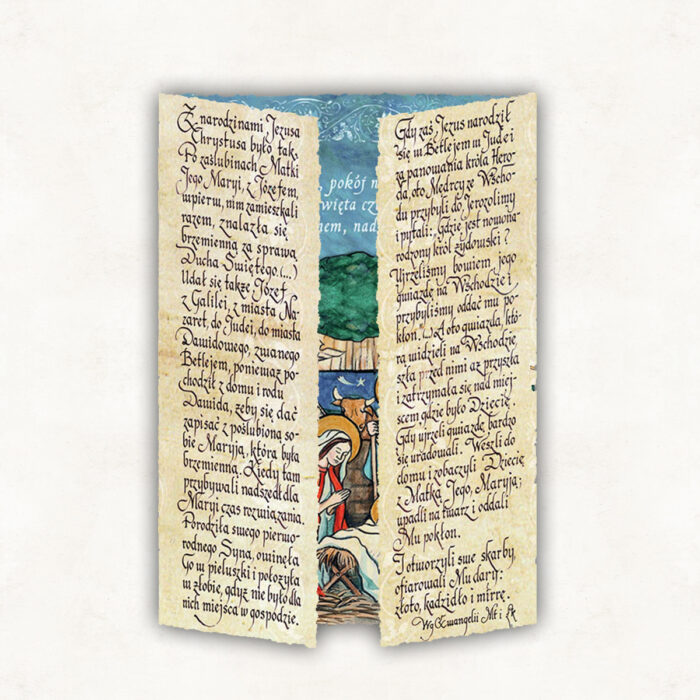 Z narodzinami Jezusa
Chrystusa było tak.
Po zaślubinach Matki
Jego, Maryi, z Józefem,
wpierw, nim zamieszkali
razem, znalazła się
brzemienną za sprawą
Ducha Świętego.(...)
Udał się także Józef
z Galilei, z miasta Na-
zaret, do Judei, do miasta
Dawidowego, zwanego
Betlejem, ponieważ po-
chodził z domu i rodu
Dawida, żeby się dać
zapisać z poślubioną so-
bie Maryją, która była
brzemienna. Kiedy tam
przybywali nadszedł dla
Maryi czas rozwiązania.
Porodziła swego pierwo-
rodnego Syna, owinęła
Go w pieluszki i położyła
w żłobie, gdyż nie było dla
nich miejsca w gospodzie.
, pokój n
więta cz
nem, nad
Gdy zaś Jezus narodził
się w Betlejem w Judei
za panowania króla Hero-
da, oto Mędrcy ze Wscho-
du przybyli do Jerozolimy
i pytali: Gdzie jest nowona-
rodzony król żydowski?
Ujrzeliśmy bowiem jego
gwiazdę na Wschodzie i
przybyliśmy oddać mu po-
kłon."(...) A oto gwiazda, któ-
rą widzieli na Wschodzie,
szła przed nimi aż przyszła
i zatrzymała się nad miej-
scem gdzie było Dziecię.
Gdy ujrzeli gwiazdę, bardzo
się uradowali. Weszli do
domu i zobaczyli Dziecię
z Matką Jego, Maryją;
upadli na twarz i oddali
Mu pokłon.
I otworzyli swe skarby,
ofiarowali Mu dary:
złoto, kadzidło i mirrę.
Wg Ewangelii Mt i Łk